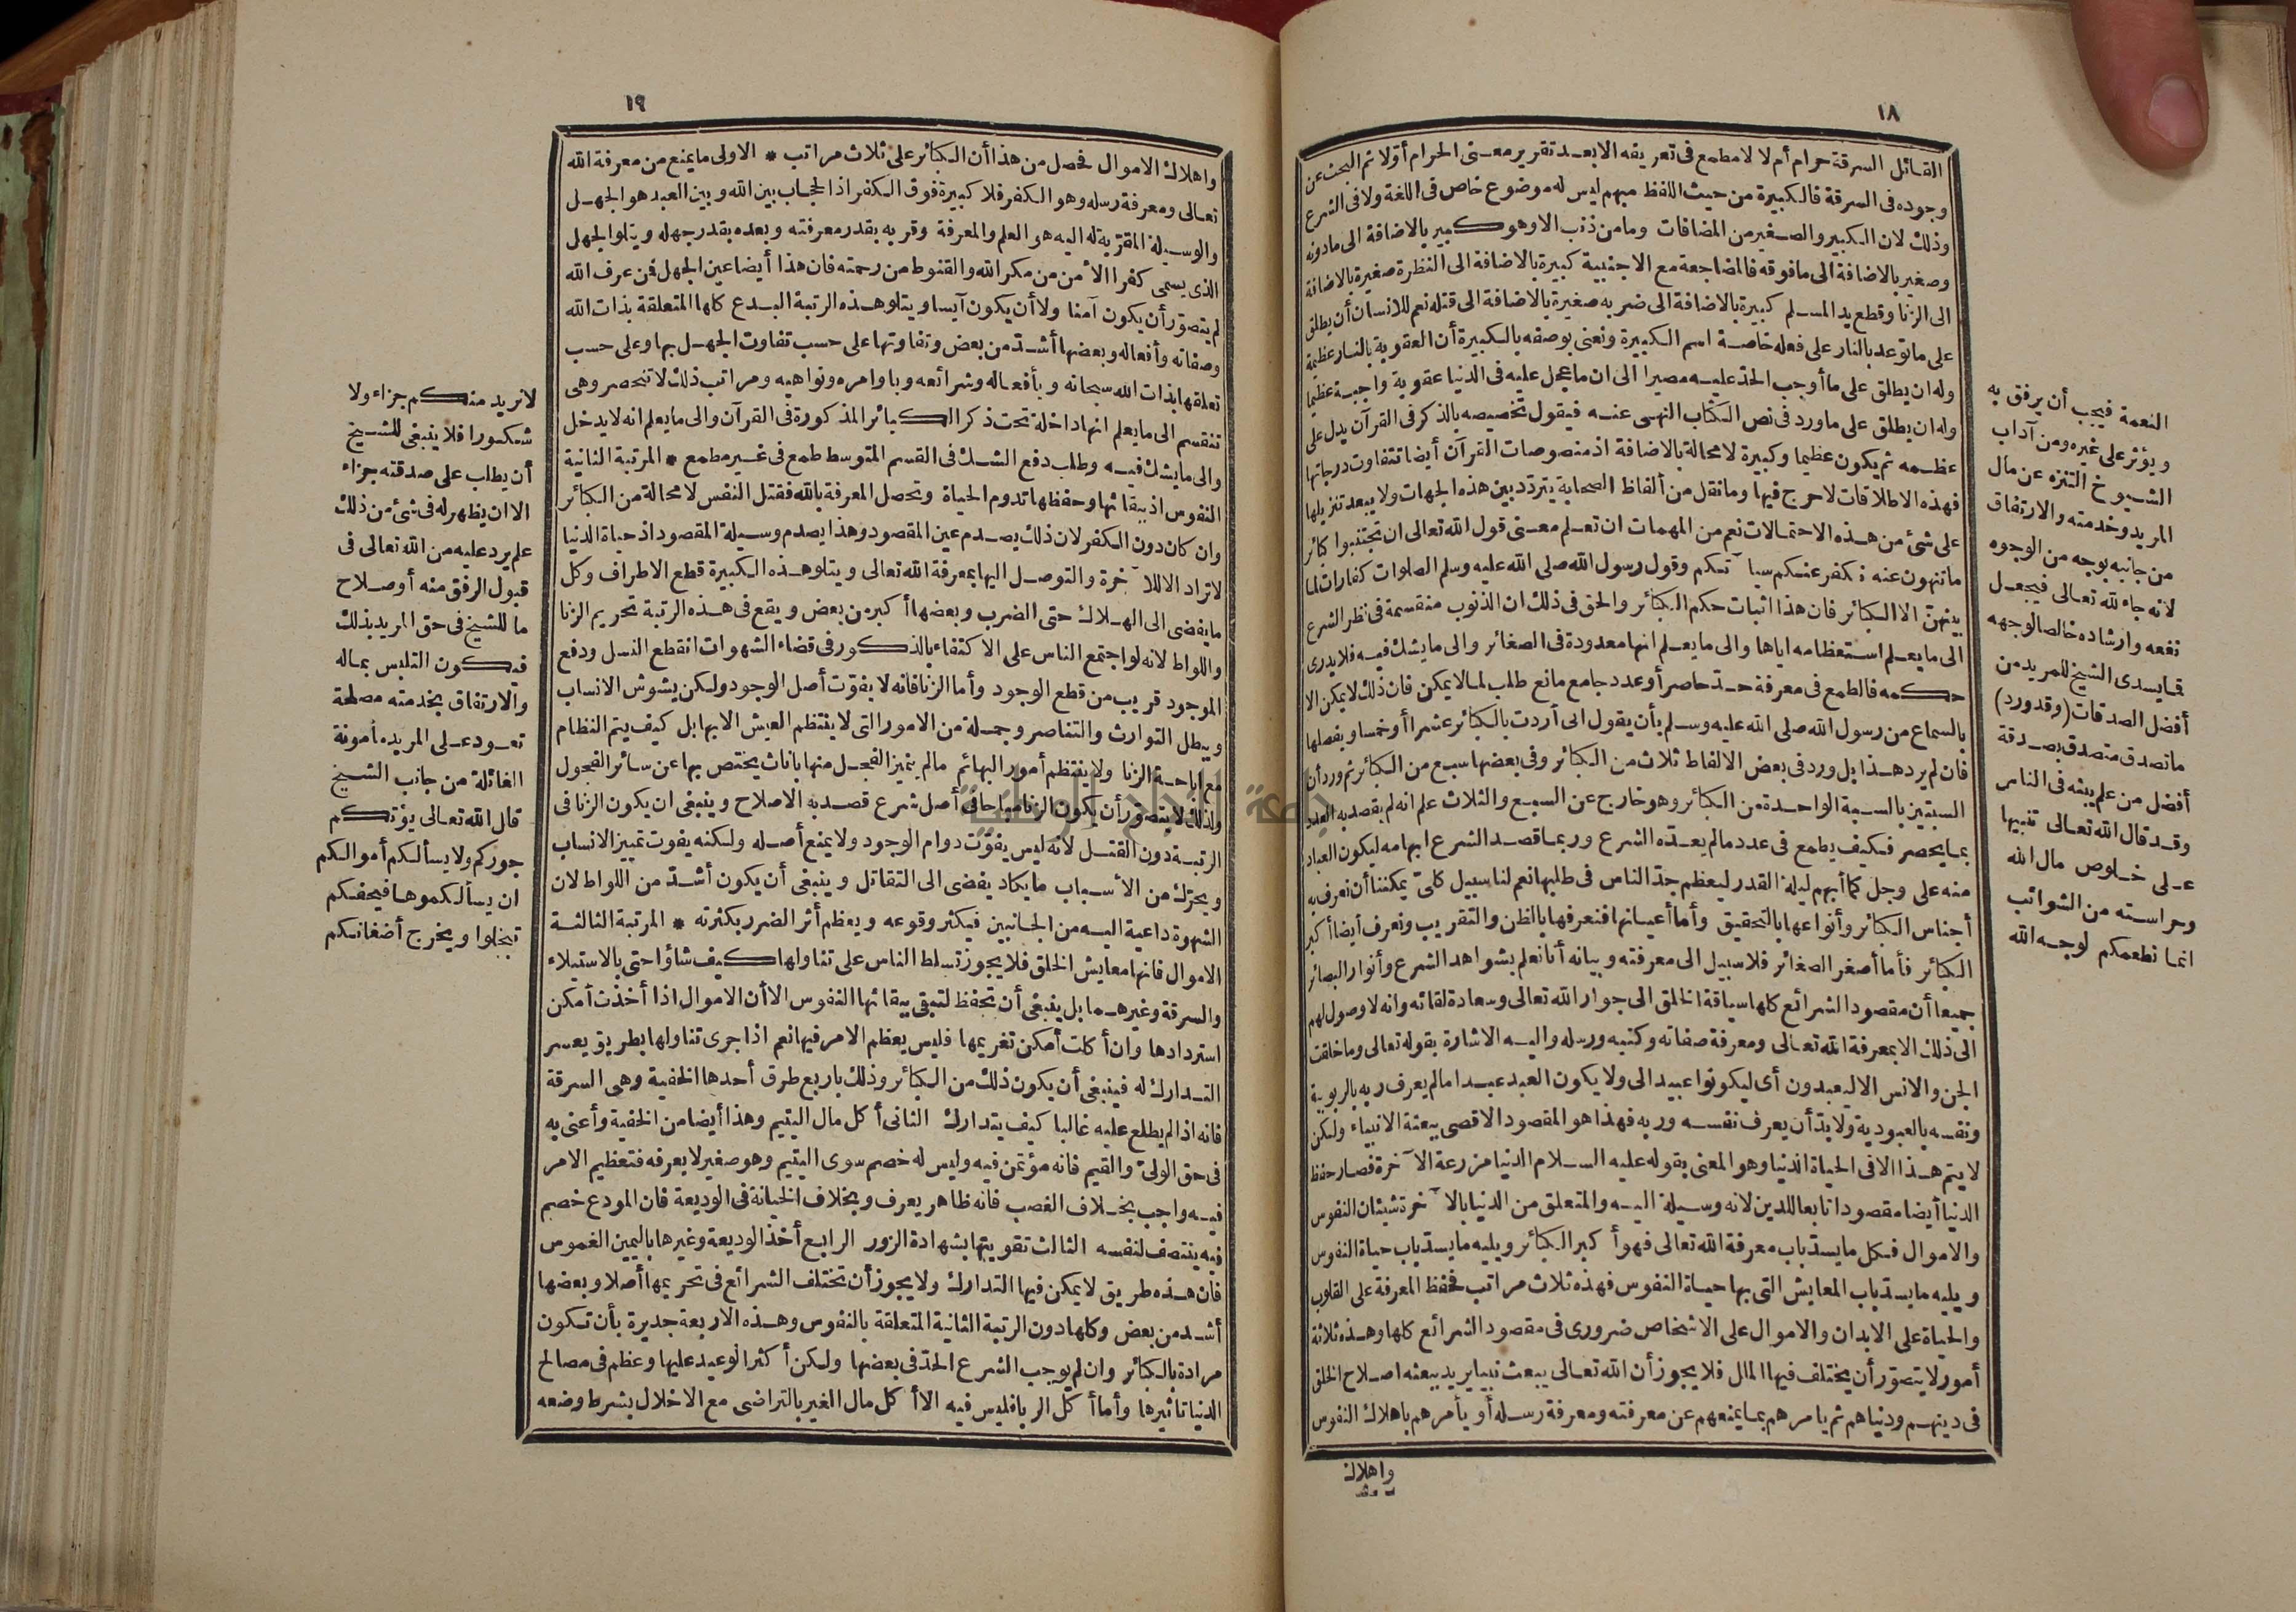 ١٨
القائل السرقة حرام أم لا لا مطمع فى تعريفه الا بعد تقرير معنى الحرام أوّلا ثم البحث عن
وجوده فى السرقة فالكبيرة من حيث اللفظ مبهم ليس له موضوع خاص فى اللغة ولا فى الشرع
وذلك لان الكبير والصغير من المضافات وما من ذنب الا وهو كبير بالاضافة الى ما دونه
وصغير بالاضافة الى ما فوقه فالمضاجعة مع الاجنبية كبيرة بالاضافة الى النظرة صغيرة بالاضافة
الى الزنا وقطع يد المسلم كبيرة بالاضافة الى ضربه صغيرة بالاضافة الى قتله نعم للانسان أن يطلق
على ما توعد بالنار على فعله خاصة اسم الكبيرة ونعنى بوصفه بالكبيرة أن العقوبة بالنار عظيمة
وله ان يطلق على ما أوجب الحدّ عليه مصيرا الى ان ما عجل عليه فى الدنيا عقوبة واجبة عظيما
وله ان يطلق على ما ورد فى نص الكتاب النهى عنه فيقول تخصيصه بالذكر فى القرآن يدل على
عظمه ثم يكون عظيما وكبيرة لا محالة بالاضافة اذ منصوصات القرآن أيضا تتفاوت درجاتها
فهذه الاطلاقات لا حرج فيها وما نقل من ألفاظ الصحابة يتردّد بين هذه الجهات ولا يبعد تنزيلها
على شئ من هذه الاحتمالات نعم من المهمات ان تعلم معنى قول الله تعالى ان تجتنبوا كبائر
ما تنهون عنه نكفر عنكم سيآتكم وقول رسول الله صلى الله عليه وسلم الصلوات كفارات لما
بينهنّ الا الكبائر فان هذا اثبات حكم الكبائر والحق فى ذلك ان الذنوب منقسمة فى نظر الشرع
الى ما يعلم استعظامه اياها والى ما يعلم انها معدودة فى الصغائر والى ما يشك فيه فلا يدرى
حكمه فالطمع فى معرفة حدّ حاصر أو عدد جامع مانع طلب لما لا يمكن فان ذلك لا يمكن الا
بالسماع من رسول الله صلى الله عليه وسلم بأن يقول انى أردت بالكبائر عشرا أو خمسا ويفصلها
فان لم يرد هذا بل ورد فى بعض الالفاظ ثلاث من الكبائر وفى بعضها سبع من الكبائر ثم ورد أن
السبتين بالسبة الواحدة من الكبائر وهو خارج عن السبع والثلاث علم انه لم يقصد به العدد
بما يحصر فكيف يطمع فى عدد ما لم يعدّه الشرع وربما قصد الشرع ابهامه ليكون العباد
منه على وجل كما أبهم ليلة القدر ليعظم جدّ الناس فى طلبها نعم لنا سبيل كلىّ يمكننا أن نعرف به
أجناس الكبائر وأنواعها بالتحقيق وأما أعيانها فنعرفها بالظن والتقريب ونعرف أيضا أكبر
الكبائر فأما أصغر الصغائر فلا سبيل الى معرفته وبيانه أنا نعلم بشواهد الشرع وأنوار البصائر
جميعا أن مقصود الشرائع كلها سياقة الخلق الى جوار الله تعالى وسعادة لقائه وانه لا وصول لهم
الى ذلك الا بمعرفة الله تعالى ومعرفة صفاته وكتبه ورسله واليه الاشارة بقوله تعالى وما خلقت
الجن والانس الا ليعبدون أى ليكونوا عبيدا لى ولا يكون العبد عبدا ما لم يعرف ربه بالربوبية
ونفسه بالعبودية ولا بدّ أن يعرف نفسه وربه فهذا هو المقصود الاقصى ببعثة الانبياء ولكن
لا يتم هذا الا فى الحياة الدنيا وهو المعنى بقوله عليه السلام الدنيا مزرعة الآخرة فصار حفظ
الدنيا أيضا مقصودا تابعا للدين لانه وسيلة اليه والمتعلق من الدنيا بالآخرة شيئان النفوس
والاموال فكل ما يسدّ باب معرفة الله تعالى فهو أكبر الكبائر ويليه ما يسدّ باب حياة النفوس
ويليه ما يسدّ باب المعايش التى بها حياة النفوس فهذه ثلاث مراتب فحفظ المعرفة على القلوب
والحياة على الابدان والاموال على الاشخاص ضرورى فى مقصود الشرائع كلها وهذه ثلاثة
أمور لا يتصوّر أن يختلف فيها الملل فلا يجوز أن الله تعالى يبعث نبيا يريد ببعثه اصلاح الخلق
فى دينهم ودنياهم ثم يأمرهم بما يمنعهم عن معرفته ومعرفة رسله أو يأمرهم باهلاك النفوس
واهلاك
النعمة فيجب أن يرفق به
ويؤثر على غيره ومن آداب
الشيوخ التنزه عن مال
المريد وخدمته والارتفاق
من جانبه بوجه من الوجوه
لانه جاء لله تعالى فيجعل
نفعه وارشاده خالصا لوجهه
فما يسدى الشيخ للمريد من
أفضل الصدقات (وقد ورد)
ما تصدق متصدق بصدقة
أفضل من علم يبثه فى الناس
وقد قال الله تعالى تنبيها
على خلوص مال الله
وحراسته من الشوائب
انما نطعمكم لوجه الله
١٩
واهلاك الاموال فحصل من هذا أن الكبائر على ثلاث مراتب * الاولى ما يمنع من معرفة الله
تعالى ومعرفة رسله وهو الكفر فلا كبيرة فوق الكفر اذ الحجاب بين الله وبين العبد هو الجهل
والوسيلة المقرّبة له اليه هو العلم والمعرفة وقربه بقدر معرفته وبعده بقدر جهله ويتلو الجهل
الذى يسمى كفرا الأمن من مكر الله والقنوط من رحمته فان هذا أيضا عين الجهل فمن عرف الله
لم يتصوّر أن يكون آمنا ولا أن يكون آيسا ويتلو هذه الرتبة البدع كلها المتعلقة بذات الله
وصفاته وأفعاله وبعضها أشدّ من بعض وتفاوتها على حسب تفاوت الجهل بها وعلى حسب
تعلقها بذات الله سبحانه وبأفعاله وشرائعه وباوامره ونواهيه ومراتب ذلك لا تنحصر وهى
تنقسم الى ما يعلم انها داخلة تحت ذكر الكبائر المذكورة فى القرآن والى ما يعلم انه لا يدخل
والى ما يشك فيه وطلب دفع الشك فى القسم المتوسط طمع فى غير مطمع * المرتبة الثانية
النفوس اذ ببقائها وحفظها تدوم الحياة وتحصل المعرفة بالله فقتل النفس لا محالة من الكبائر
وان كان دون الكفر لان ذلك يصدم عين المقصود وهذا يصدم وسيلة المقصود اذ حياة الدنيا
لا تراد الا للآخرة والتوصل اليها بمعرفة الله تعالى ويتلو هذه الكبيرة قطع الاطراف وكل
ما يفضى الى الهلاك حتى الضرب وبعضها أكبر من بعض ويقع فى هذه الرتبة تحريم الزنا
واللواط لانه لو اجتمع الناس على الاكتفاء بالذكور فى قضاء الشهوات انقطع النسل ودفع
الموجود قريب من قطع الوجود وأما الزنا فانه لا يفوّت أصل الوجود ولكن يشوش الانساب
ويبطل التوارث والتناصر وجملة من الامور التى لا ينتظم العيش الا بها بل كيف يتم النظام
مع اباحة الزنا ولا ينتظم أمور البهائم ما لم يتميز الفحل منها باناث يختص بها عن سائر الفحول
ولذلك لا يتصوّر أن يكون الزنا مباحا فى أصل شرع قصد به الاصلاح وينبغى ان يكون الزنا فى
الرتبة دون القتل لانه ليس يفوّت دوام الوجود ولا يمنع أصله ولكنه يفوت تمييز الانساب
ويحرّك من الأسباب ما يكاد يفضى الى التقاتل وينبغى أن يكون أشدّ من اللواط لان
الشهوة داعية اليه من الجانبين فيكثر وقوعه ويعظم أثر الضرر بكثرته * المرتبة الثالثة
الاموال فانها معايش الخلق فلا يجوز تسلط الناس على تناولها كيف شاؤا حتى بالاستيلاء
والسرقة وغيرهما بل ينبغى أن تحفظ لتبقى ببقائها النفوس الا أن الاموال اذا أخذت أمكن
استردادها وان أكلت أمكن تغريمها فليس يعظم الامر فيها نعم اذا جرى تناولها بطريق يعسر
التدارك له فينبغى أن يكون ذلك من الكبائر وذلك باربع طرق أحدها الخفية وهى السرقة
فانه اذا لم يطلع عليه غالبا كيف يتدارك الثانى أكل مال اليتيم وهذا أيضا من الخفية وأعنى به
فى حق الولىّ والقيم فانه مؤتمن فيه وليس له خصم سوى اليتيم وهو صغير لا يعرفه فتعظيم الامر
فيه واجب بخلاف الغصب فانه ظاهر يعرف وبخلاف الخيانة فى الوديعة فان المودع خصم
فيه ينتصف لنفسه الثالث تفويتها بشهادة الزور الرابع أخذ الوديعة وغيرها باليمين الغموس
فان هذه طريق لا يمكن فيها التدارك ولا يجوز أن تختلف الشرائع فى تحريمها أصلا وبعضها
أشد من بعض وكلها دون الرتبة الثانية المتعلقة بالنفوس وهذه الاربعة جديرة بأن تكون
مرادة بالكبائر وان لم يوجب الشرع الحدّ فى بعضها ولكن أكثر الوعيد عليها وعظم فى مصالح
الدنيا تاثيرها وأما أكل الربا فليس فيه الا أكل مال الغير بالتراضى مع الاخلال بشرط وضعه
لا نريد منكم جزاء ولا
شكورا فلا ينبغى للشيخ
أن يطلب على صدقته جزاء
الا ان يظهر له فى شئ من ذلك
علم يرد عليه من الله تعالى فى
قبول الرفق منه أو صلاح
ما للشيخ فى حق المريد بذلك
فيكون التلبس بماله
والارتفاق بخدمته مصلحة
تعود على المريد مأمونة
الغائلة من جانب الشيخ
قال الله تعالى يؤتكم
أجوركم ولا يسألكم أموالكم
ان يسألكموها فيحفكم
تبخلوا ويخرج أضغانكم